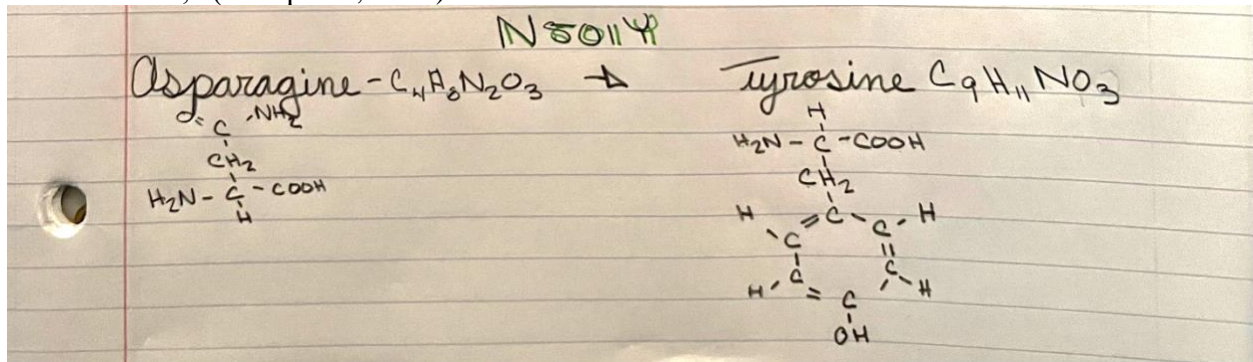 N501Y
Asparagine - C₄H₈N₂O₃ → Tyrosine C₉H₁₁NO₃
O=C-NH₂
CH₂
H₂N-C-COOH
H
H
H₂N-C-COOH
CH₂
H C C H
C C H
H C C
OH